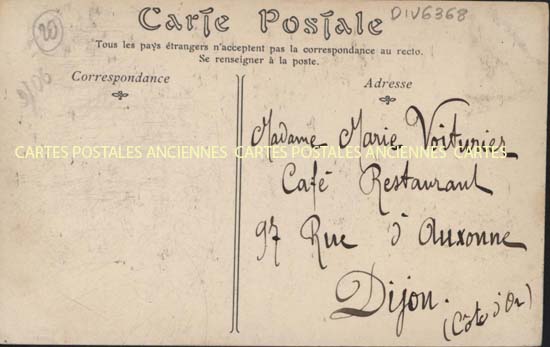 20
DIV6368
Carte Postale
Tous les pays étrangers n'acceptent pas la correspondance au recto.
Se renseigner à la poste.
Correspondance
Adresse
Madame Marie Voiturier
CARTES POSTALES ANCIENNES CARTES POSTALES ANCIENNES CARTES
Café Restaurant
97 Rue d'Auxonne
Dijon.
(Côte d'Or)